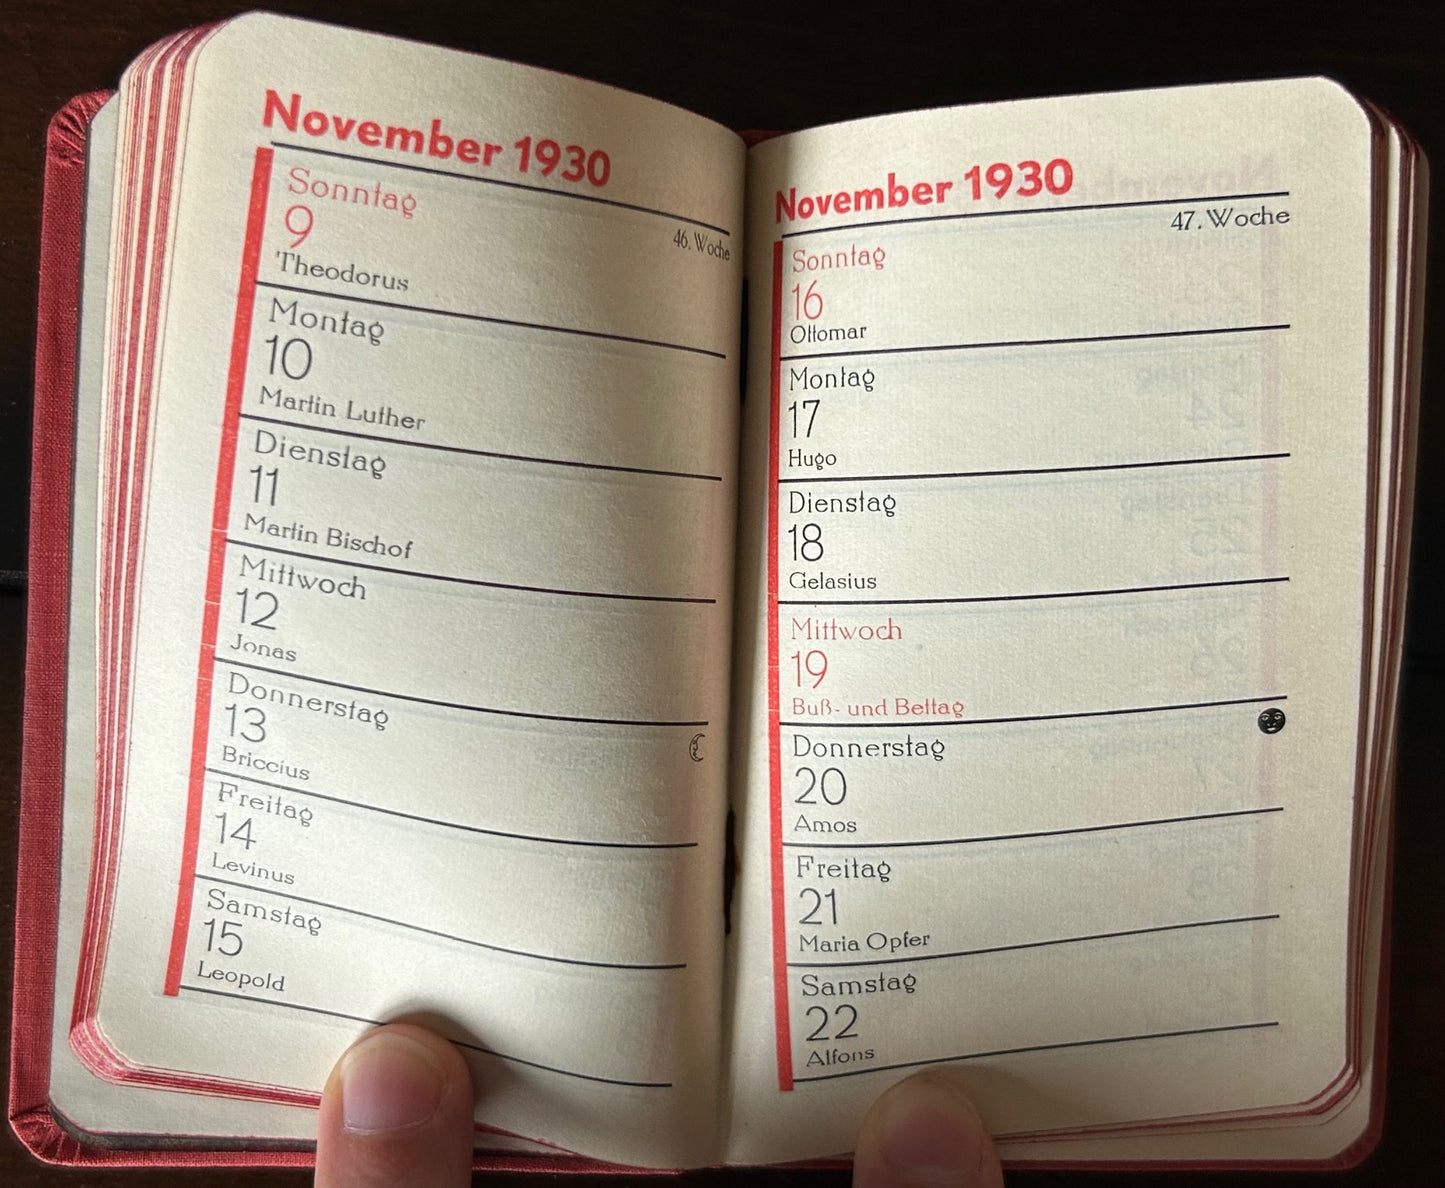 November 1930
46. Woche
Sonntag
9
Theodorus
Montag
10
Martin Luther
Dienstag
11
Martin Bischof
Mittwoch
12
Jonas
Donnerstag
13
Briccius
Freitag
14
Levinus
Samstag
15
Leopold
November 1930
47. Woche
Sonntag
16
Ottomar
Montag
17
Hugo
Dienstag
18
Gelasius
Mittwoch
19
Buß- und Bettag
Donnerstag
20
Amos
Freitag
21
Maria Opfer
Samstag
22
Alfons